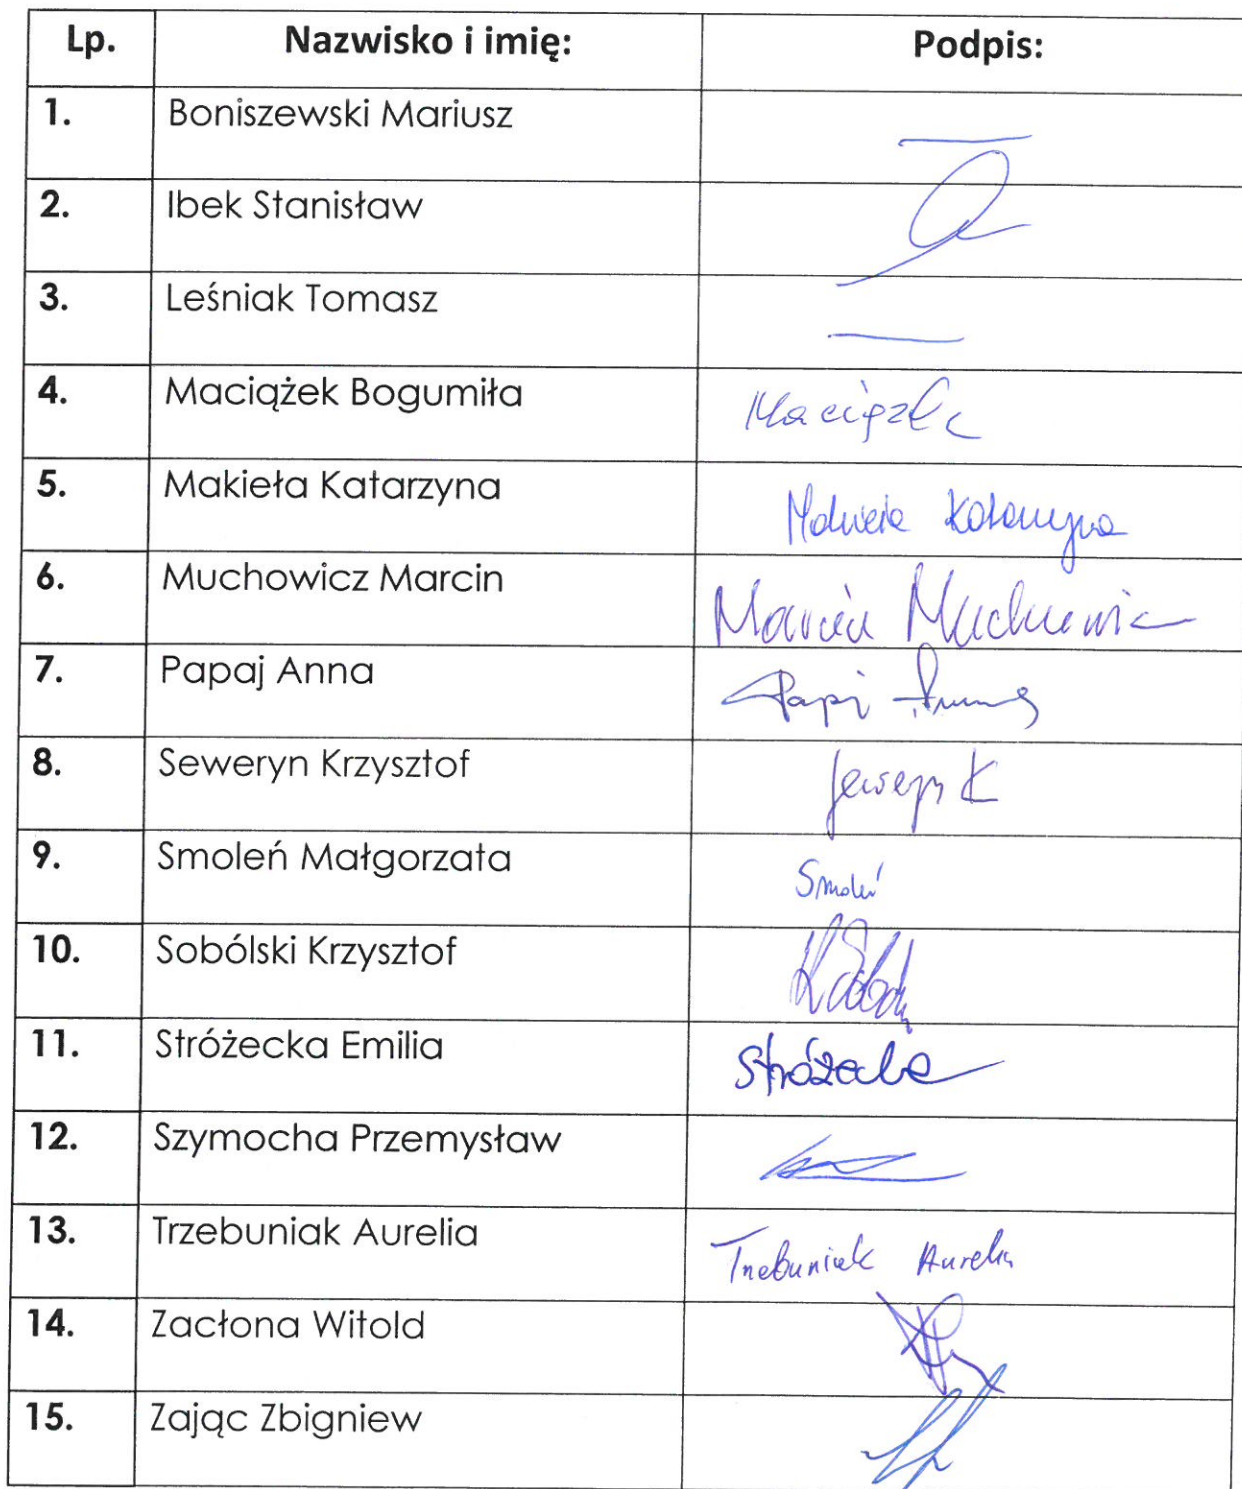 Lp. Nazwisko i imię: Podpis:
1. Boniszewski Mariusz
2. Ibek Stanisław
3. Leśniak Tomasz
4. Maciążek Bogumiła Maciążek
5. Makieła Katarzyna Makieła Katarzyna
6. Muchowicz Marcin Marcin Muchowicz
7. Papaj Anna Papaj Anna
8. Seweryn Krzysztof Seweryn K
9. Smoleń Małgorzata Smoleń
10. Sobólski Krzysztof
11. Stróżecka Emilia Stróżecka
12. Szymocha Przemysław
13. Trzebuniak Aurelia Trzebuniak Aurelia
14. Zacłona Witold
15. Zając Zbigniew